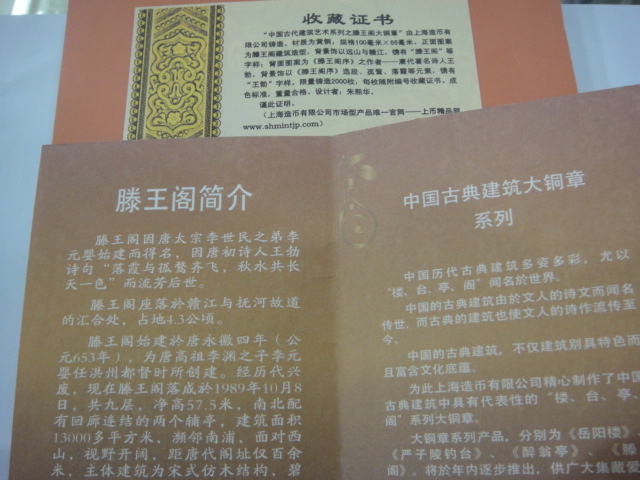 收藏证书
"中国古代建筑艺术系列之滕王阁大铜章"由上海造币有
限公司铸造。材质为黄铜；规格100毫米×66毫米。正面图案
为滕王阁建筑造型，背景饰以远山与赣江，镌有"滕王阁"等
字样；背面图案为《滕王阁序》之作者——唐代著名诗人王
勃，背景饰以《滕王阁序》选段、孤鹜、落霞等元素，镌有
"王勃"字样。限量铸造2000枚，每枚随附编号收藏证书，成
色标准，重量合格。设计者：朱熙华。
谨此证明。
（上海造币有限公司市场型产品唯一官网——上币精品网
www.shmintjp.com）
滕王阁简介
滕王阁因唐太宗李世民之弟李
元婴始建而得名，因唐初诗人王勃
诗句"落霞与孤鹜齐飞，秋水共长
天一色"而流芳后世。
滕王阁座落於赣江与抚河故道
的汇合处，占地4.3公顷。
滕王阁始建於唐永徽四年（公
元653年），为唐高祖李渊之子李元
婴任洪州都督时所创建。经历代兴
废，现在滕王阁落成於1989年10月8
日，共九层，净高57.5米，南北配
有回廊连结的两个辅亭，建筑面积
13000多平方米，濒邻南浦，面对西
山，视野开阔，距唐代阁址仅百余
米，主体建筑为宋式仿木结构，碧
中国古典建筑大铜章
系列
中国历代古典建筑多姿多彩，尤以
"楼、台、亭、阁"闻名於世界。
中国的古典建筑由於文人的诗文而闻名
传世，而古典的建筑也使文人的诗作流传至
今。
中国的古典建筑，不仅建筑别具特色而
且富含文化底蕴。
为此上海造币有限公司精心制作了中国
古典建筑中具有代表性的"楼、台、亭、
阁"系列大铜章。
大铜章系列产品，分别为《岳阳楼》、
《严子陵钓台》、《醉翁亭》、《滕
阁》。将於年内逐步推出，供广大集藏爱